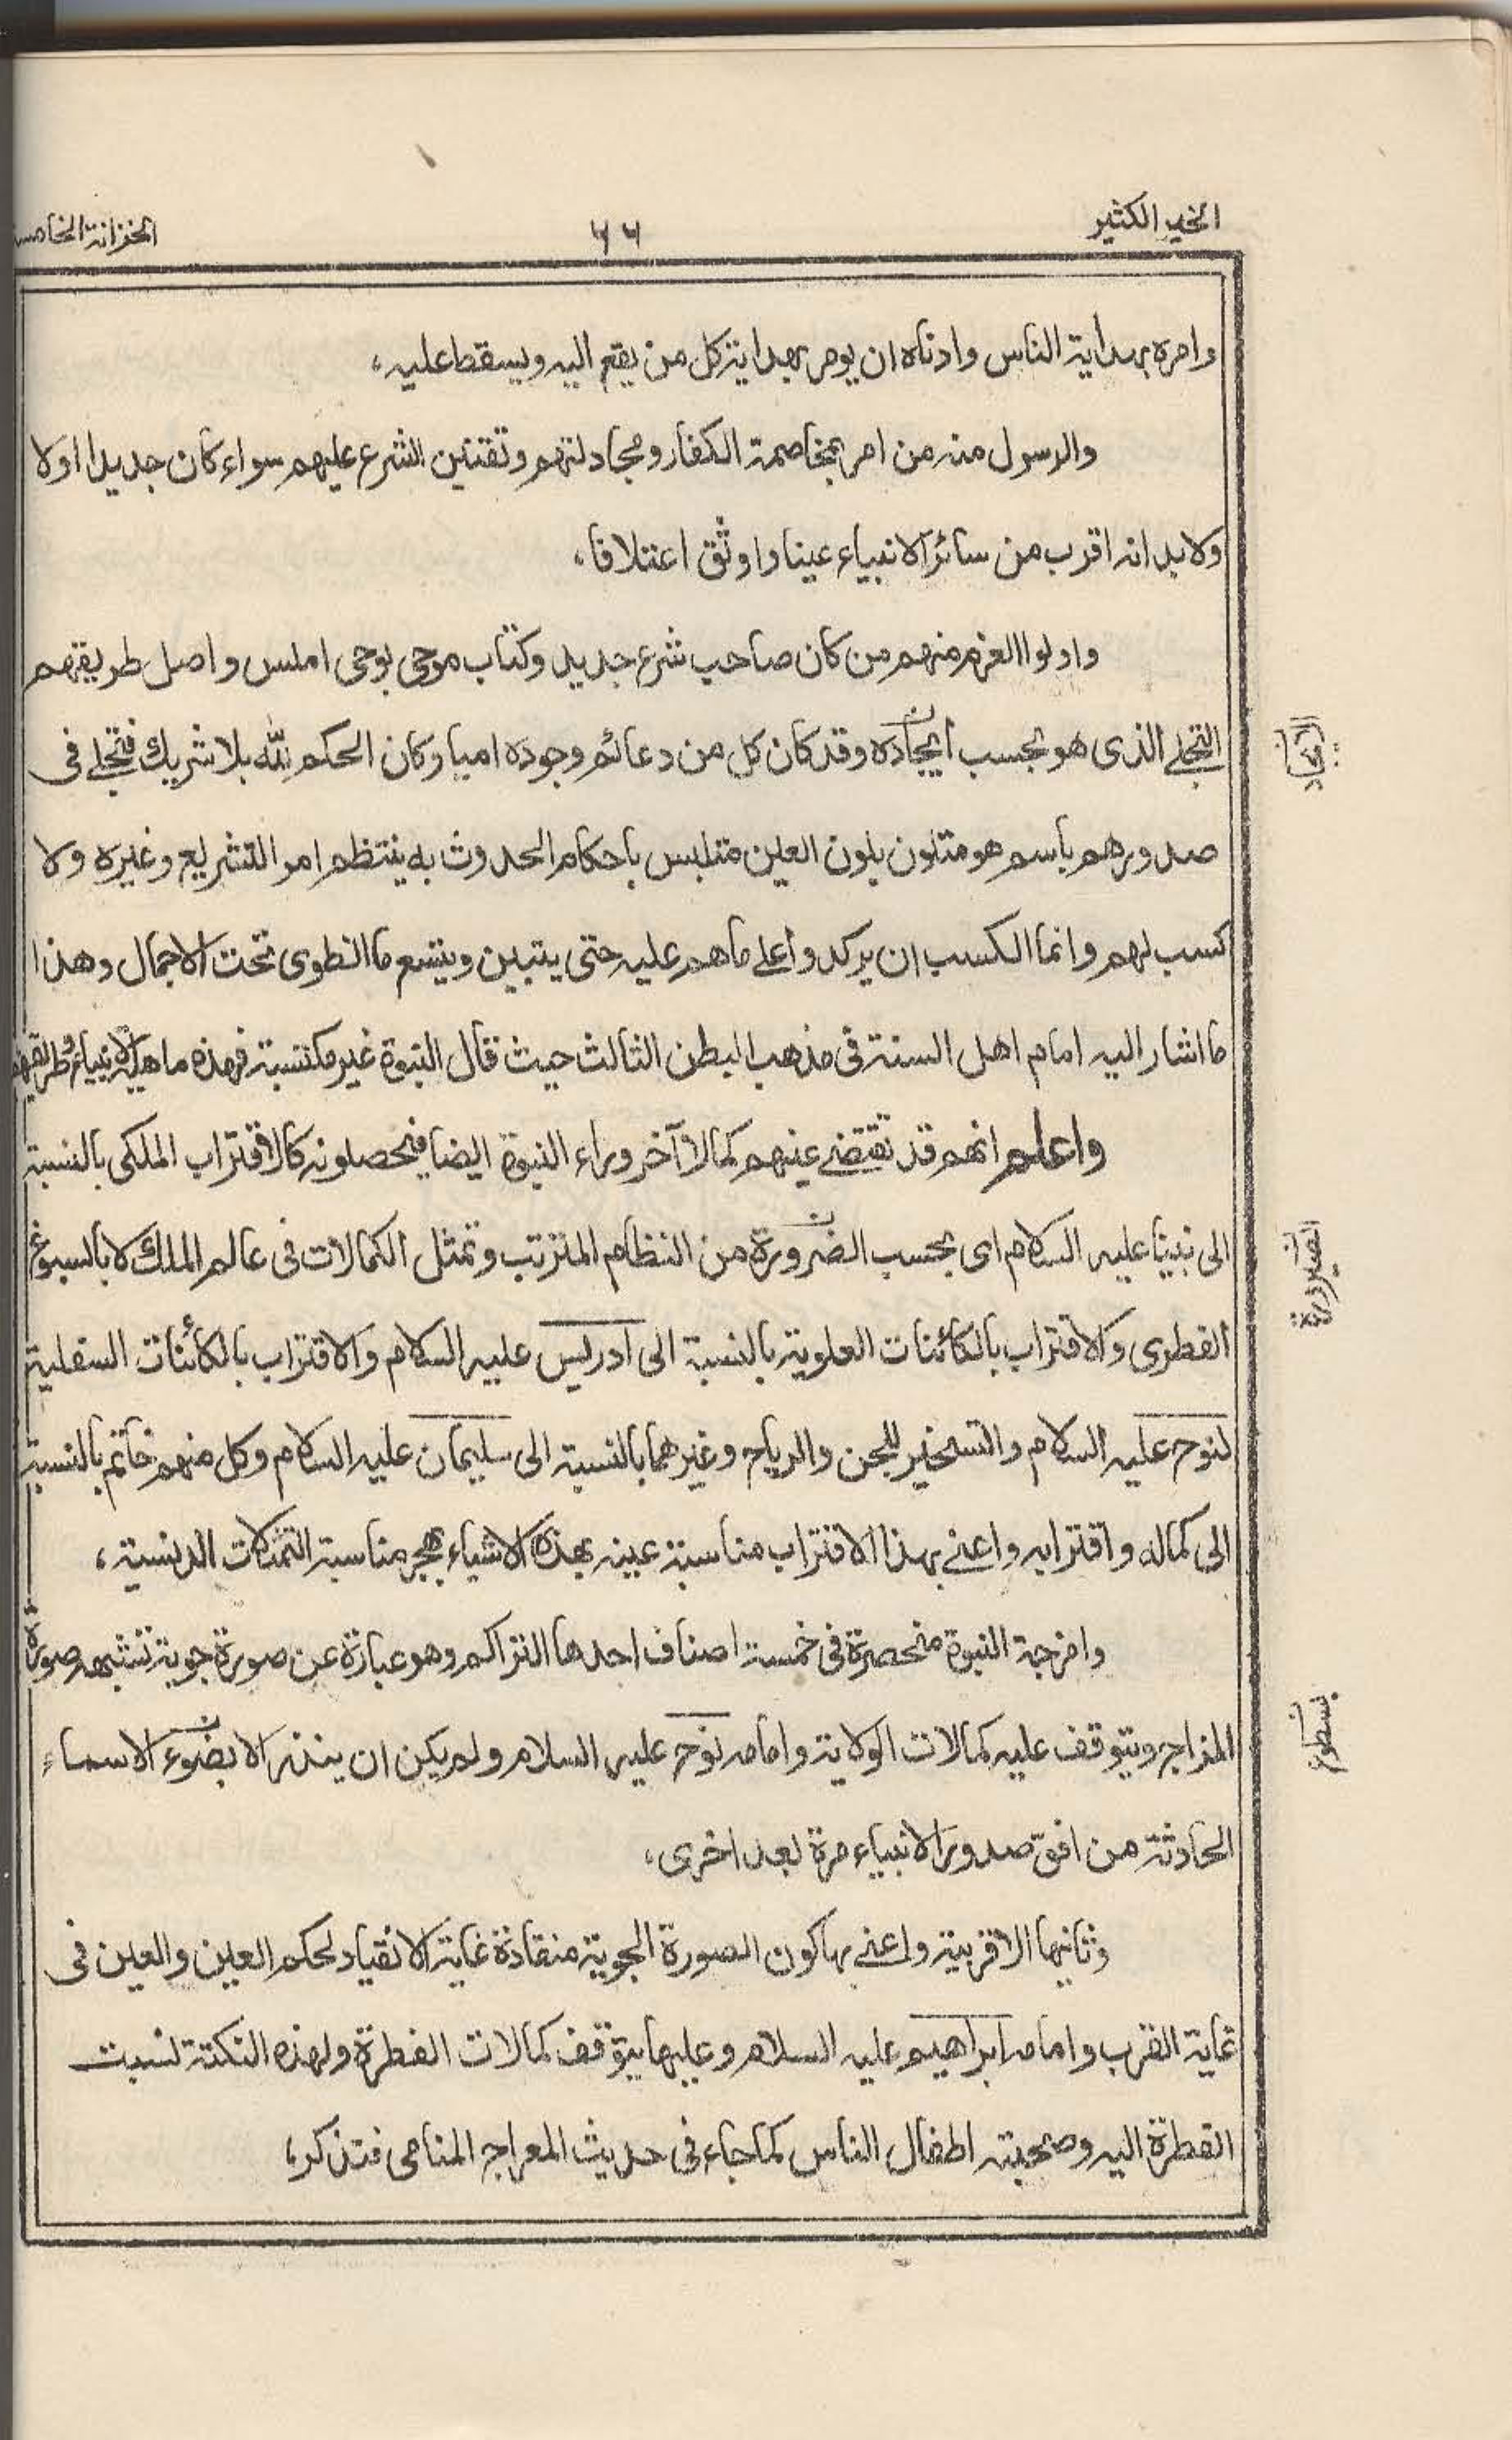 الخير الكثير
٦٦
الخزانة الخامسة
وامره بهداية الناس وادناه ان يومر بهداية كل من يقع اليه ويسقط عليه،
والرسول منه من امر بمخاصمة الكفار ومجادلتهم وتقنين الشرع عليهم سواء كان جديدا اولا
ولابد انه اقرب من سائر الانبياء عينا واوثق اعتلاقا،
واولوا العزم منهم من كان صاحب شرع جديد وكتاب موحى بوحى املس واصل طريقتهم
التجلے الذى هو بحسب ايجاده وقد كان كل من دعائم وجوده اميا وكان الحكم لله بلا شريك فتجلے فى
صدورهم باسم هو متلون بلون العين متلبس باحكام الحدوث به ينتظم امر التشريع وغيره ولا
كسب لهم وانما الكسب ان يركدوا على ما هم عليه حتى يتبين ويتسع ما انطوى تحت الاجمال وهذا
ما اشار اليه امام اهل السنة فى مذهب البطن الثالث حيث قال النبوة غير مكتسبة فهذه ماهية الانبياء وطريقتهم
واعلم انهم قد تقتضے عينهم كمالا آخر وراء النبوة ايضا فيحصلونه كالاقتراب الملكى بالنسبة
الى نبينا عليه السلام اى بحسب الضرورة من النظام المترتب وتمثل الكمالات فى عالم الملك لا بالسبوغ
الفطرى والاقتراب بالكائنات العلوية بالنسبة الى ادريس عليه السلام والاقتراب بالكائنات السفلية
لنوح عليه السلام والتسخير للجن والرياح وغيرهما بالنسبة الى سليمان عليه السلام وكل منهم خاتم بالنسبة
الى كماله واقترابه واعنے بهذا الاقتراب مناسبة عينه بهذه الاشياء بهجر مناسبة التمثلات الدنسية،
وامزجة النبوة منحصرة فى خمسة اصناف احدها التراكم وهو عبارة عن صورة جوية تشبه صورة
المزاج ويتوقف عليه كمالات الولاية وامامه نوح عليه السلام ولم يكن ان ينذر الا بضوء الاسماء
الحادثة من افق صدور الانبياء مرة بعد اخرى،
وثانيها الاقربية واعنے بها كون الصورة الجوية منقادة غاية الانقياد لحكم العين والعين فى
غاية القرب وامامه ابراهيم عليه السلام وعليها يتوقف كمالات الفطرة ولهذه النكتة نسبت
الفطرة اليه وصحبته اطفال الناس كما جاء فى حديث المعراج المنامى فتذكر،
الصيرورة
بسطوع